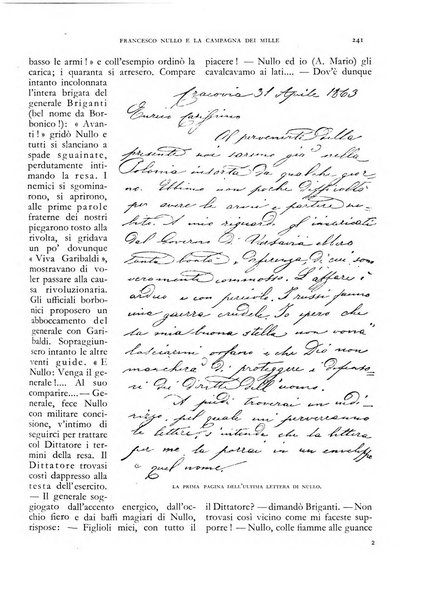 FRANCESCO NULLO E LA CAMPAGNA DEI MILLE
241
basso le armi! » e coll'esempio ordinò la
carica; i quaranta si arresero. Compare
intanto
l'intera brigata del
generale Briganti
(bel nome da Bor-
bonico!): « Avan-
ti! » gridò Nullo e
tutti si slanciano a
spade sguainate,
perdutamente inti-
mando la resa. I
nemici si sgomina-
rono, si aprirono,
alle prime parole
fraterne dei nostri
piegarono tosto alla
rivolta, si gridava
un po' dovunque
« Viva Garibaldi »
mostrando di vo-
ler passare alla cau-
sa rivoluzionaria.
Gli ufficiali borbo-
nici proposero un
abboccamento del
generale con Gari-
baldi. Sopraggiun-
sero intanto le altre
venti guide. « E
Nullo: Venga il ge-
nerale!.... Al suo
comparire.... — Ge-
nerale, fece Nullo
con militare conci-
sione, v'intimo di
seguirci per trattare
col Dittatore i ter-
mini della resa. Il
Dittatore trovasi
costì dappresso alla
testa dell'esercito.
— Il generale sog-
giogato dall'accento energico, dall'oc-
chio fiero e dai baffi magiari di Nullo,
rispose: — Figlioli miei, con tutto il
piacere! — Nullo ed io (A. Mario) gli
cavalcavamo ai lati.... — Dov'è dunque
Cracovia 31 Aprile 1863
Enrico carissimo
Al pervenirti della
presente noi saremo già nella
Polonia insorta da qualche gior-
no. Ultimo non poche difficoltà
per avere le armi e partire ar-
A mio riguardo gl' incaricati
dal Governo di Varsavia ebbero
tanta bontà e deferenza, di cui sono
veramente commosso. L'affare è
arduo e con pericolo. I russi fanno
una guerra crudele. Io spero che
la mia buona stella non vorrà
lasciarmi orfano e che Dio non
mancherà di proteggere i difenso-
ri dei Diritti dell'Uomo.
A piedi troverai un indi-
rizzo, pel quale mi perverranno
le lettere, s'intende che la lettera
per me la porrai in un enveloppe
a quel nome.
LA PRIMA PAGINA DELL'ULTIMA LETTERA DI NULLO.
il Dittatore? — dimandò Briganti. — Non
trovasi così vicino come mi faceste sup-
porre! — Nullo si fe' fiamme alle guance
2